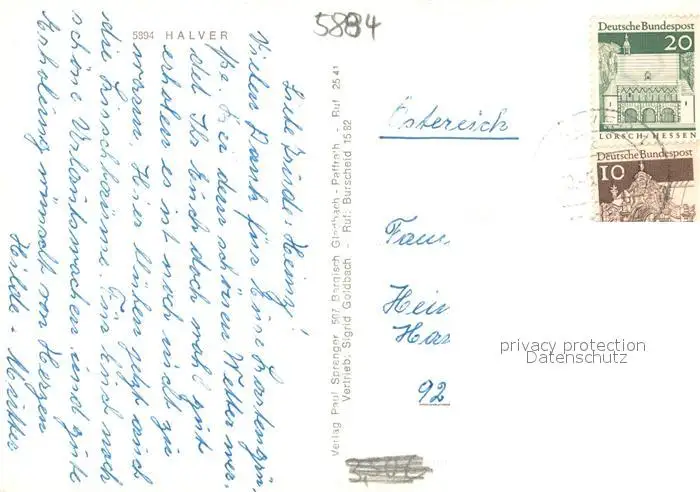 5894 HALVER
5884
Liebe Trude, Heinz!
Vielen Dank für Eure Kartengrü-
ße. Bei dem schönen Wetter wer-
det Ihr Euch doch wohl gut
erholen es ist noch nicht zu
warm. Hier blühen jetzt auch
die Kirschbäume. Für Euch noch
schöne Urlaubswochen und gute
Erholung wünscht von Herzen
Hilde + Mutter
Verlag Paul Sprenger 507 Bergisch Gladbach - Paffrath - Ruf 2541
Vertrieb: Sigrid Goldbach - Ruf: Burscheid 1582
Deutsche Bundespost
20
LORSCH/HESSEN
Deutsche Bundespost
10
Östereich
Fam
Hein
Ha
92
privacy protection
Datenschutz